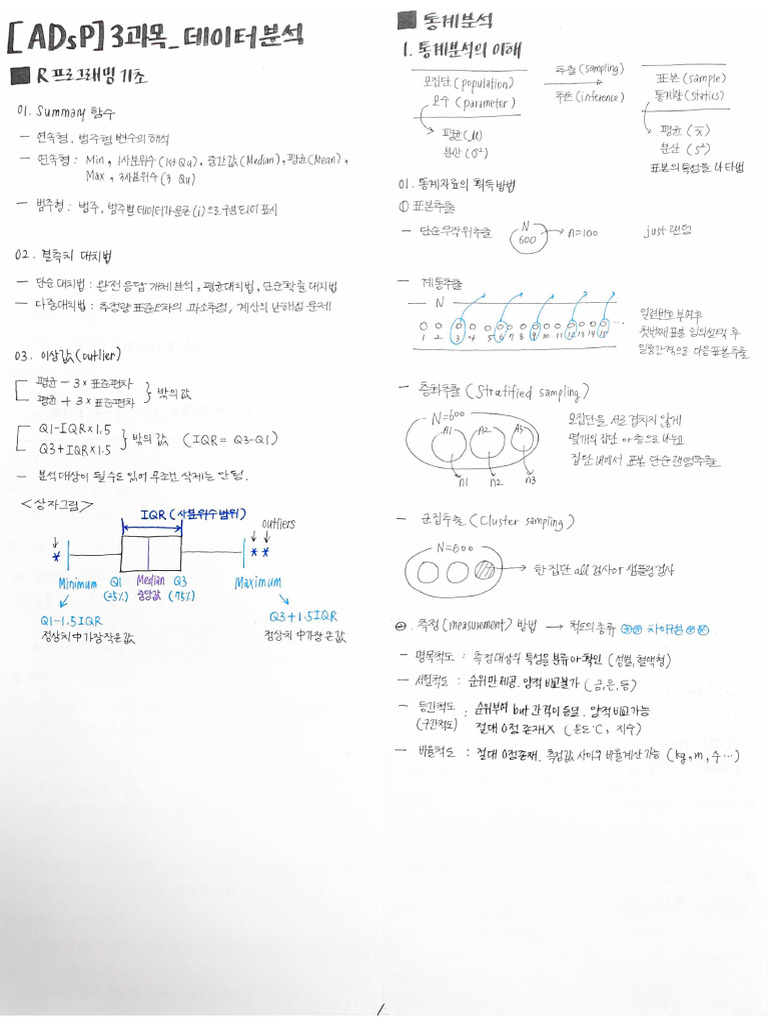 [ADsP] 3과목_데이터분석
■ R프로그래밍 기초
01. Summary 함수
- 연속형, 범주형 변수의 해석
- 연속형 : Min, 1사분위수(1st Qu), 중간값(Median), 평균(Mean),
Max, 3사분위수(3 Qu)
- 범주형 : 범주, 범주별 데이터가 분균(i)으로 구분되어 표시
02. 결측치 대치법
- 단순대치법 : 완전 응답 개체 분석, 평균대치법, 단순확률 대치법
- 다중대치법 : 추정량 표준오차의 과소추정, 계산의 난해성 문제
03. 이상값(outlier)
평균 - 3 × 표준편차
평균 + 3 × 표준편차
} 밖의 값
Q1-IQR×1.5
Q3+IQR×1.5
} 밖의 값 (IQR = Q3-Q1)
- 분석대상이 될수도 있어 무조건 삭제는 안됨.
<상자그림>
IQR (사분위수범위)
outliers
* * *
Minimum Q1 Median Q3 Maximum
(25%) 중앙값 (75%)
Q1-1.5IQR
정상치 中 가장 작은값
Q3+1.5IQR
정상치 中 가장 큰 값
■ 통계분석
1. 통계분석의 이해
모집단(population)
모수(parameter)
평균(μ)
분산(σ²)
추출(sampling)
추론(inference)
표본(sample)
통계량(statics)
평균(x̄)
분산(s²)
표본의 특성을 나타냄
01. 통계자료의 획득방법
① 표본추출
- 단순무작위추출 N 600 → n=100 just 랜덤
- 계통추출
N
1 2 3 4 5 6 7 8 9 10 11 12 13 14 15 ...
일련번호 부여후
첫번째표본 임의선택 후
일정간격으로 다음표본추출
- 층화추출(Stratified sampling)
N=600
A1 A2 A3
n1 n2 n3
모집단을 서로 겹치지 않게
몇개의 집단 or 층으로 나누고
집단 내에서 표본 단순랜덤추출
- 군집추출(Cluster sampling)
N=600
→ 한 집단 all 검사 or 샘플링 검사
② 측정(measurement) 방법 → 척도의 종류 차이구분
- 명목척도 : 측정 대상의 특성을 분류 or 확인 (성별, 혈액형)
- 서열척도 : 순위만 제공. 양적 비교불가 (금, 은, 동)
- 등간척도 : 순위부여 but 간격이 동일. 양적비교가능
(구간척도) 절대 0점 존재X (온도℃, 지수)
- 비율척도 : 절대 0점존재. 측정값 사이의 비율계산 가능 (kg, m, 수 ...)